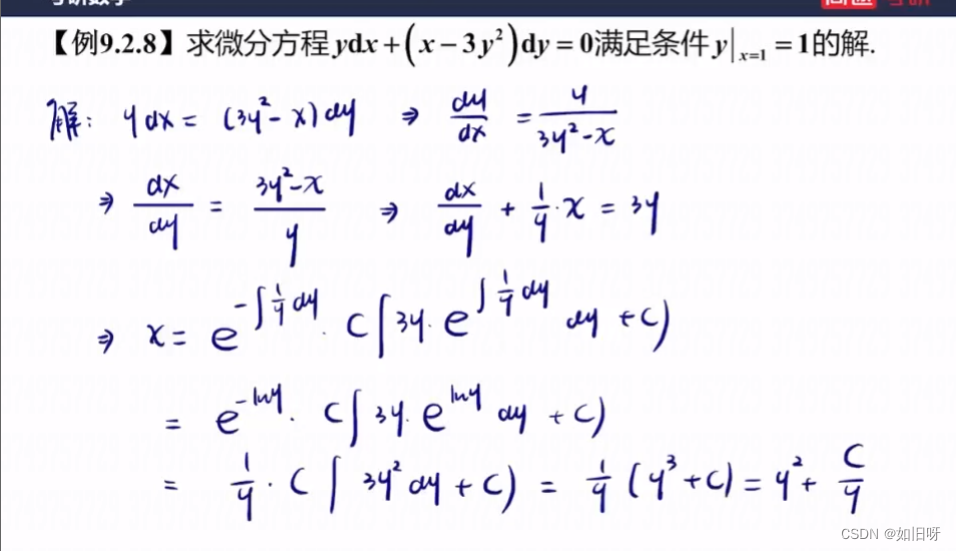 考研数学
【例9.2.8】求微分方程ydx+(x-3y²)dy=0满足条件y|ₓ₌₁=1的解.
解: ydx = (3y²-x)dy ⇒ dy/dx = y/(3y²-x)
⇒ dx/dy = (3y²-x)/y ⇒ dx/dy + 1/y·x = 3y
⇒ x = e^(-∫1/y dy) · (∫3y·e^(∫1/y dy) dy + C)
= e^(-lny) · (∫3y·e^(lny) dy + C)
= 1/y · (∫3y²dy + C) = 1/y (y³+C) = y² + C/y
CSDN @如旧呀